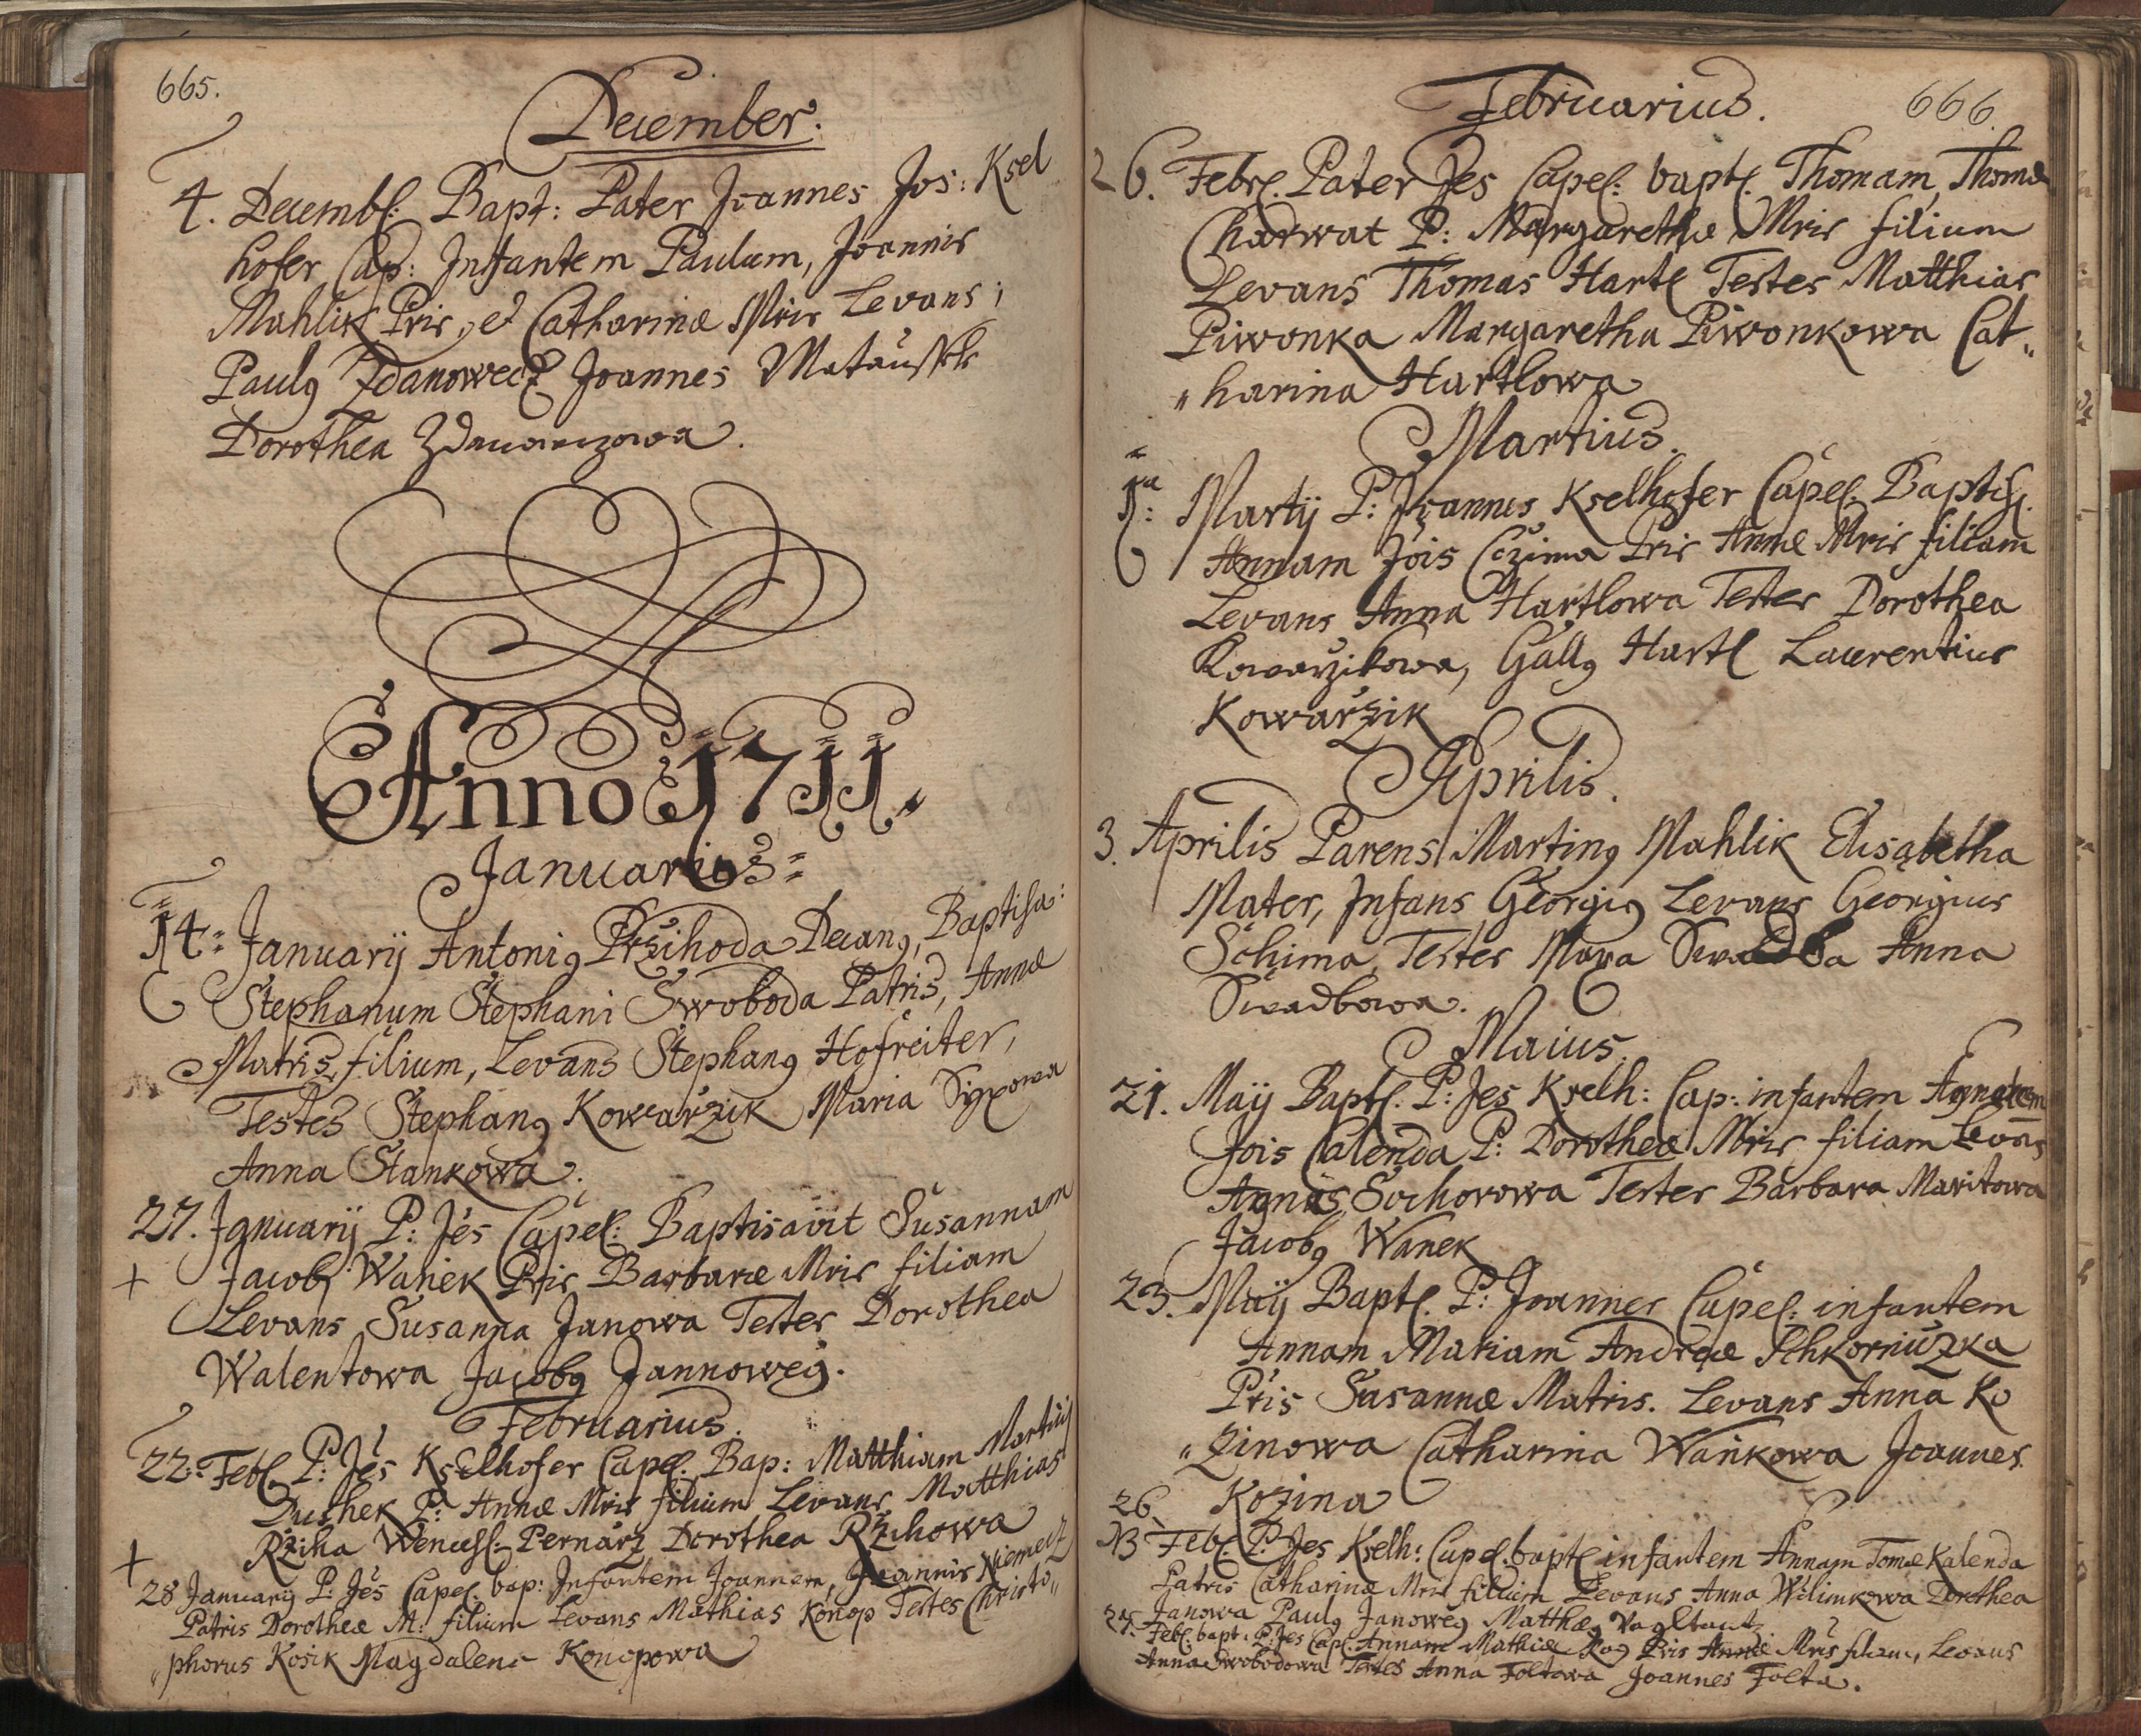 665.
December.
4. Decembl: Bapt: Pater Joannes Jos: Ksel
hofer Cap: Infantem Paulum, Joannis
Mahlik Pris, et Catharinæ Mris Levans;
Paulg Zdanowecz Joannes Matausseh
Dorothea
Anno 1711.
Januarius
14: Januarij Antonig Przihoda Decang, Baptisa:
Stephanum Stephani Swoboda Patris, Annæ
Matris, filium, Levans Stephang Hofreiter,
Testes Stephang Kowarzik Maria
Anna Stankowa.
27. Januarij P: Jes Capel: Baptisavit Susannam
+ Jacobj Wanek Pris Barbaræ Mris filiam
Levans Susanna Janowa Testes Dorothea
Walentowa Jacobg Jannoweg.
Februarius.
22: Febl. P: Jes Kselhofer Capel: Bap: Matthiam Martini
Dushek P: Annæ Mris filium Levans Matthias
Rziha Wencesl: Pernarz Dorothea Rzihowa
+
28 Januarij P: Jes Capel. bap: Infantem Joannem, Joannis Niemecz
Patris Dorotheæ M: filium Levans Mathias Konop Testes Christo„
„phorus Kosik Magdalena Konopowa
Februarius. 666.
26. Febrl. Pater Jes Capel: baptl. Thomam, Thomæ
Charwat P: Margarethæ Mris filium
Levans Thomas Hartl Testes Matthias
Piwonka Margaretha Piwonkowa Cat„
„harina Hartlowa
Martius.
1ª: Martij P: Joannes Kselhofer Capel: Baptisl.
Annam Jois Czima Pris Annæ Mris filiam
Levans Anna Hartlowa Testes Dorothea
Kowarzikowa, Gallg Hartl Laurentius
Kowarzik
Aprilis.
3. Aprilis Parens Marting Mahlik Elisabetha
Mater, Infans Georgig Levans Georgius
Schima, Testes Swadba Anna
Swadbowa.
Maius.
21. Maij Baptl. P: Jes Kselh: Cap: infantem Agnetem
Jois Calenda P: Dorotheæ Mris filiam Levans
Agnes Sochorowa Testes Barbara Maritowa
Jacobg Wanek
23. Maij Baptl. P: Joannes Capel: infantem
Annam Mariam Andreæ Schkorniuzka
Pris Susannæ Matris. Levans Anna Ko
„zinowa Catharina Wankowa Joannes
Kozina
26.
NB Febl. P: Jes Kselh: Capel. baptl infantem Annam Tomæ Kalenda
Patris Catharinæ Mris filium Levans Anna Wilimkowa Dorothea
Janowa Paulg Janoweg Matthæg
27. Febl. bapt: P: Jes Capl: Annam Mathiæ Pris Annæ Mris filiam, Levans
Anna Swobodowa Testes Anna Foltowa Joannes Folta.